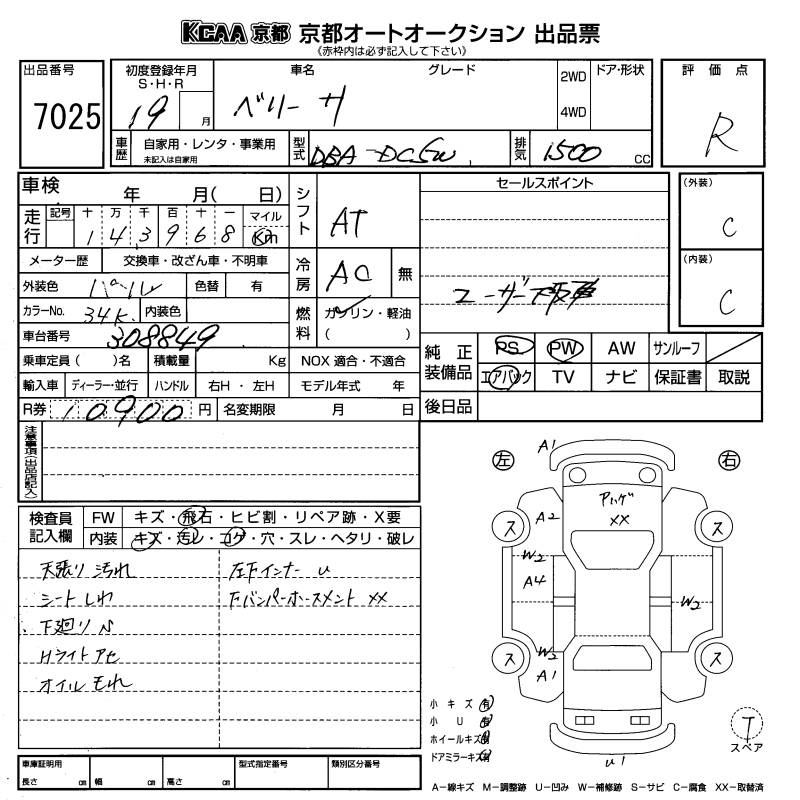 KCAA 京都 京都オートオークション 出品票
(赤枠内は必ず記入して下さい)
出品番号 7025
初度登録年月 S・H・R 19 月
車名 グレード ベリーサ
2WD 4WD
ドア・形状
評価点 R
車歴 自家用・レンタ・事業用 未記入は自家用
型式 DBA-DC5W
排気 1500 CC
車検 年 月( 日)
シフト AT
セールスポイント
(外装) C
走行 記号 十 万 千 百 十 一 マイル
1 4 3 9 6 8 Km
メーター歴 交換車・改ざん車・不明車
冷房 AC 無
(内装) C
外装色 パール 色替 有
ユーザー下取車
カラーNo. 34K 内装色
燃料 ガソリン・軽油 ( )
車台番号 308849
乗車定員 ( )名 積載量 Kg NOX 適合・不適合
純正装備品 PS PW AW サンルーフ
エアバック TV ナビ 保証書 取説
輸入車 ディーラー・並行 ハンドル 右H・左H モデル年式 年
R券 10900 円 名変期限 月 日
後日品
注意事項(出品店記入)
検査員記入欄 FW キズ・飛石・ヒビ割・リペア跡・X要
内装 キズ・汚レ・コゲ・穴・スレ・ヘタリ・破レ
天張り汚れ
シートしわ
下廻りS
Hライトアセ
オイルもれ
左下インナーU
下バンパーホースメントXX
左 右
A1
アハゲ
XX
A2
ス ス
W2
A4
W2
W2
A1
ス ス
U1
小キズ 有
小U 有
ホイールキズ 有
ドアミラーキズ 有
T
スペア
車庫証明用 長さ cm 幅 cm 高さ cm
型式指定番号
類別区分番号
A-線キズ M-調整跡 U-凹み W-補修跡 S-サビ C-腐食 XX-取替済